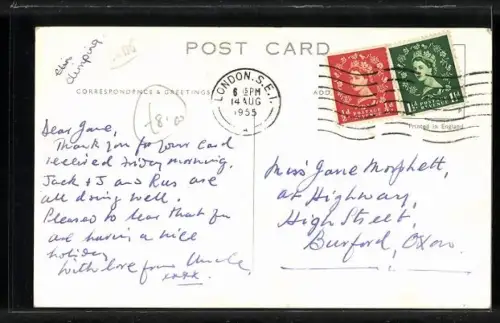 Climping
POST CARD
CORRESPONDENCE & GREETINGS
ADD
LONDON. S.E.1.
6 PM
14 AUG
1955
Printed in England
£8.00
Dear Jane,
Thank you for your card
received Friday morning.
Jack + J and Rus are
all doing well.
Pleased to hear that you
are having a nice
holiday
with love from Uncle
xxxx
Miss Jane Morphett,
at Highway,
High Street,
Burford, Oxon.